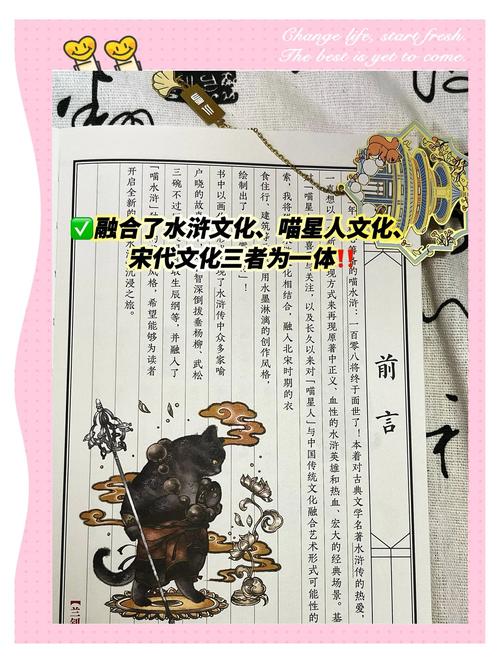 Change life, start fresh.
The best is yet to come.
✅融合了水浒文化、喵星人文化、
宋代文化三者为一体‼️
前言
备的喵水浒：一百零八将终于面世了！本着对古典文学名著水浒传的热爱，
一直想以 现方式来再现原著中正义、血性的水浒英雄和热血、宏大的经典场景。基
对「喵星 与关注，以及长久以来对「喵星人」与中国传统文化融合艺术形式可能性的
索，我将 化相结合，融入北宋时期的衣
食住行、建筑 用水墨淋漓的创作风格，
绘制出了 ！
书中以画代 现了水浒传中众多家喻
户晓的故事 智深倒拔垂杨柳、武松
三碗不过 取生辰纲等，并融入了
「喵水浒」 风格，希望能够为读者
开启全新的 沉浸之旅。